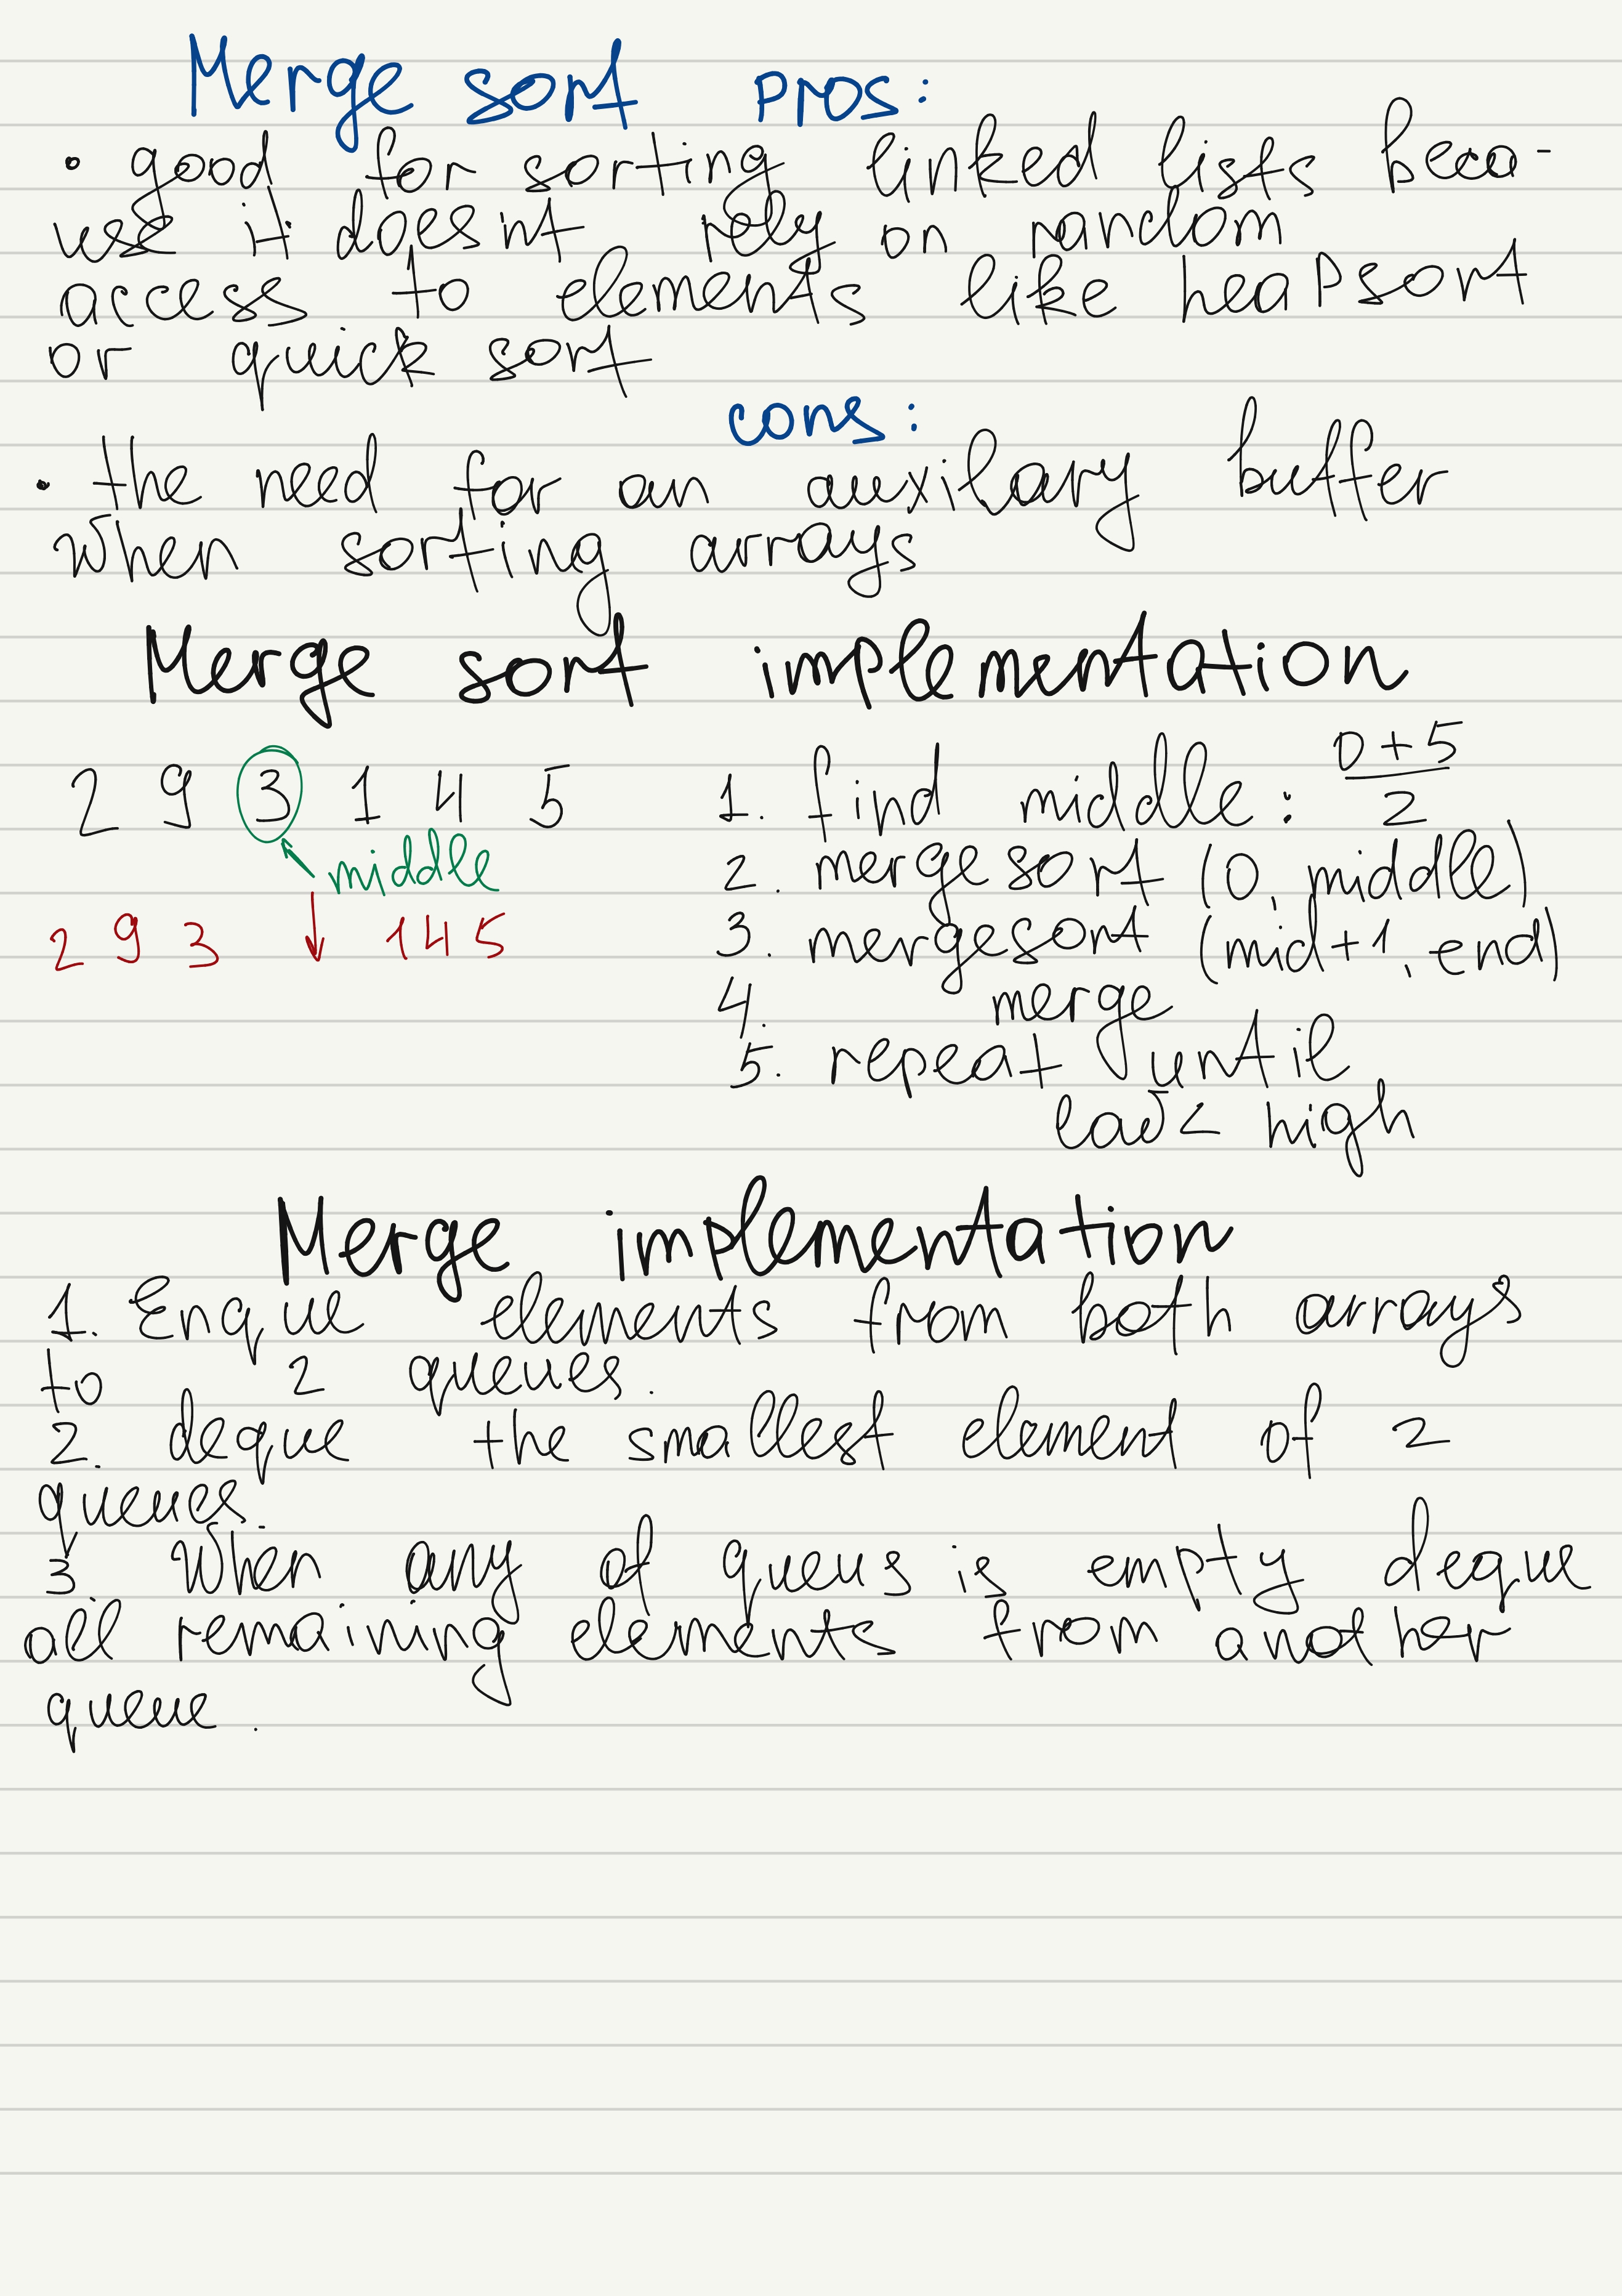 Merge sort pros:
• good for sorting linked lists beca-
use it doesnt rely on random
access to elements like heapsort
or quick sort
cons:
• the need for an auxilary buffer
when sorting arrays
Merge sort implementation
2 9 3 1 4 5
middle
2 9 3 ↓ 1 4 5
1. find middle: (0+5)/2
2. merge sort (0, middle)
3. mergesort (mid+1, end)
4. merge
5. repeat until
low < high
Merge implementation
1. Enque elements from both arrays
to 2 queues.
2. deque the smallest element of 2
queues.
3 When any of queus is empty deque
all remaining elements from another
queue.